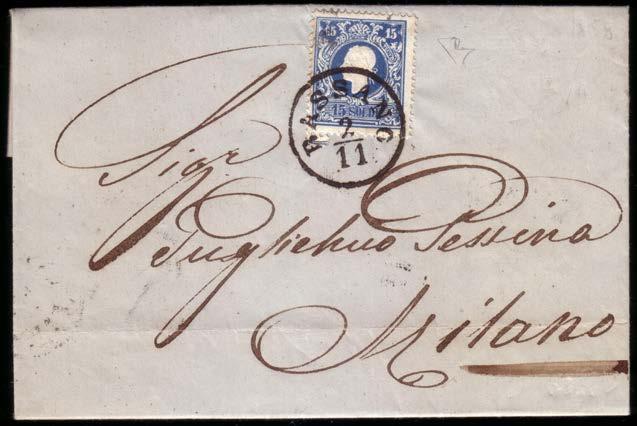 15 15
15 SOLDI
BASSANO
2
11
Sigr
Guglielmo Pessina
Milano